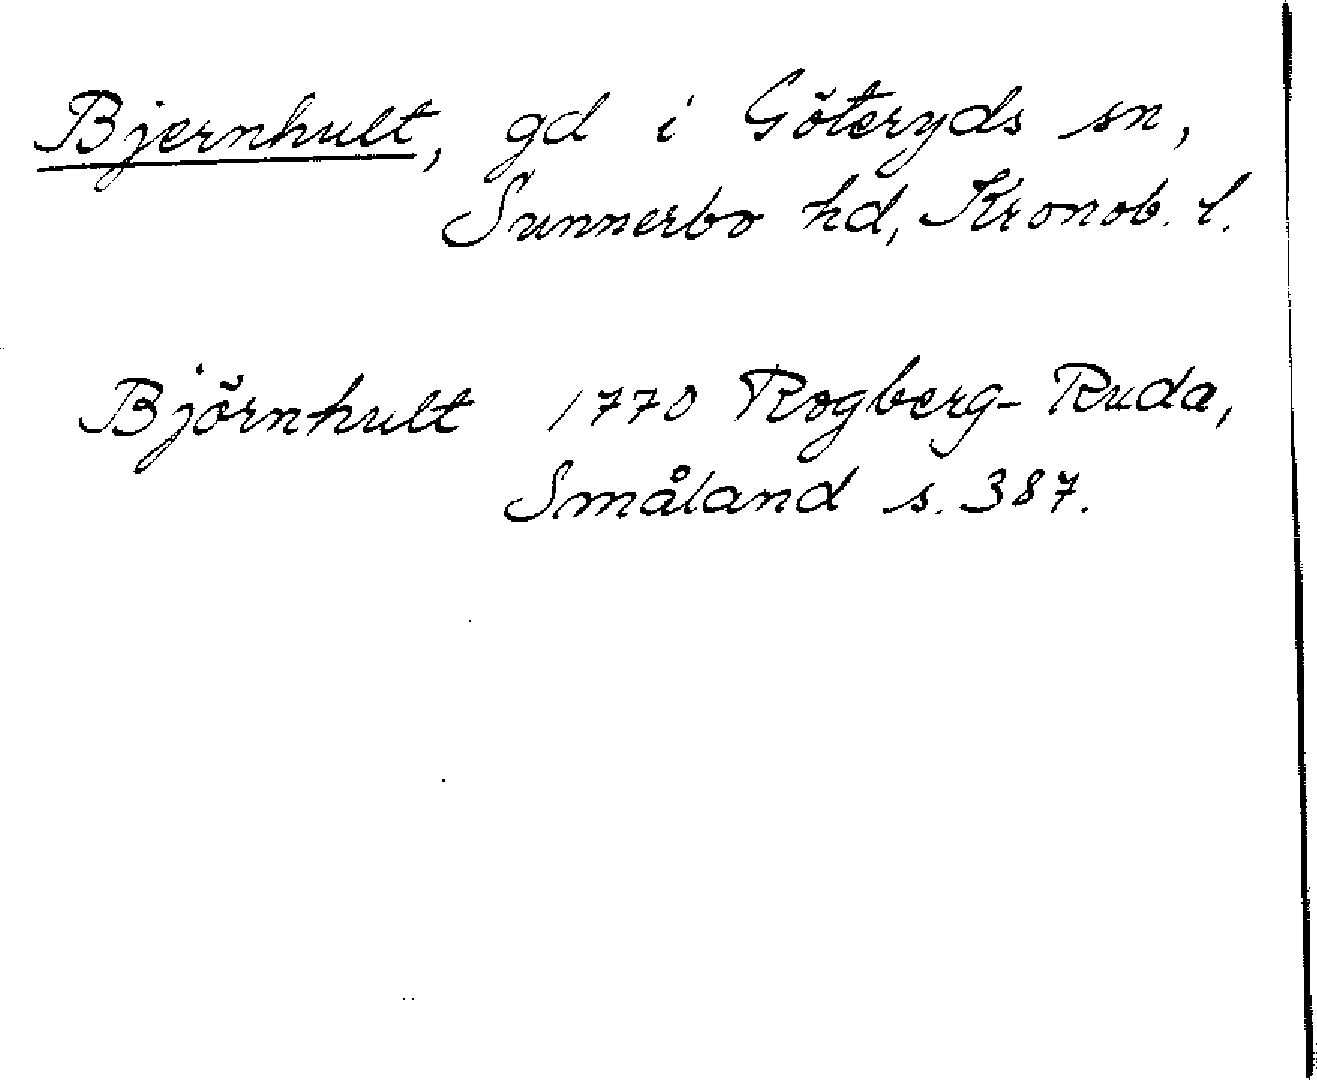 Bjernhult, gd i Göteryds sn,
Sunnerbo hd, Kronob. l.
Björnhult 1770 Rogberg-Ruda,
Småland s. 387.